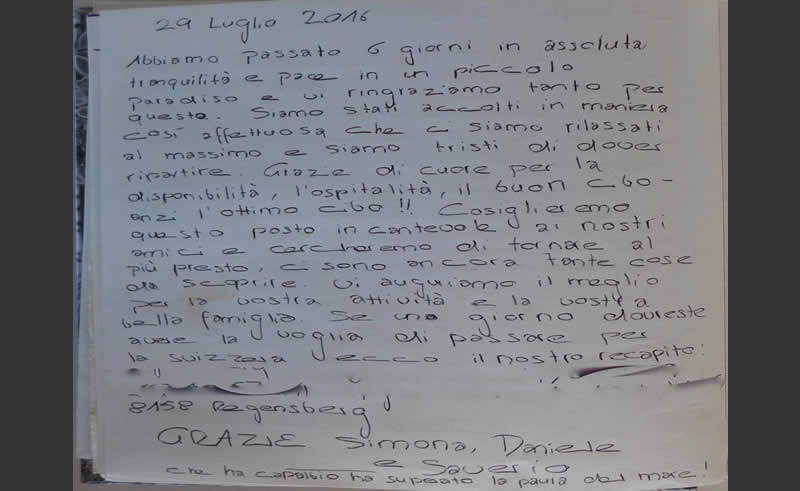 29 Luglio 2016
Abbiamo passato 6 giorni in assoluta
tranquilità e pace in un piccolo
paradiso e vi ringraziamo tanto per
questo. Siamo stati accolti in maniera
così affettuosa che ci siamo rilassati
al massimo e siamo tristi di dover
ripartire. Graze di cuore per la
disponibilità, l'ospitalità, il buon cibo -
anzi l'ottimo cibo!! Cosiglieremo
questo posto incantevole ai nostri
amici e cercheremo di tornare al
più presto, ci sono ancora tante cose
da scoprire. Vi auguriamo il meglio
per la vostra attività e la vostra
bella famiglia. Se una giorno doveste
avere la voglia di passare per
la suizzera ecco il nostro recapito:
8158 Regensberg
GRAZIE Simona, Daniele
e Saverio
che ha capalbio ha superato la paura del mare!